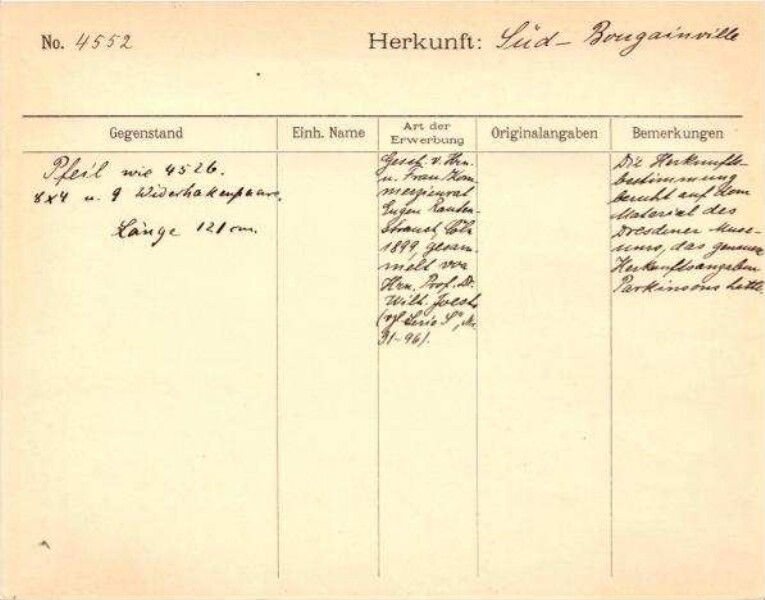 No. 4552
Herkunft: Süd-Bougainville
Gegenstand
Einh. Name
Art der
Erwerbung
Originalangaben
Bemerkungen
Pfeil wie 4526.
8x4 u. 9 Widerhakenpaare.
Länge 121 cm.
Gesch. v. Hrn.
u. Frau Kom
merzienrat
Eugen Rauten-
strauch, Cöln
1899, gesam
melt von
Hrn. Prof. Dr.
Wilh. Joest
(vgl. Serie S", No.
31-96).
Die Herkunfts-
bestimmung
beruht auf dem
Material des
Dresdener Muse-
ums, das genaue
Herkunftsangaben
Parkinsons hatte.